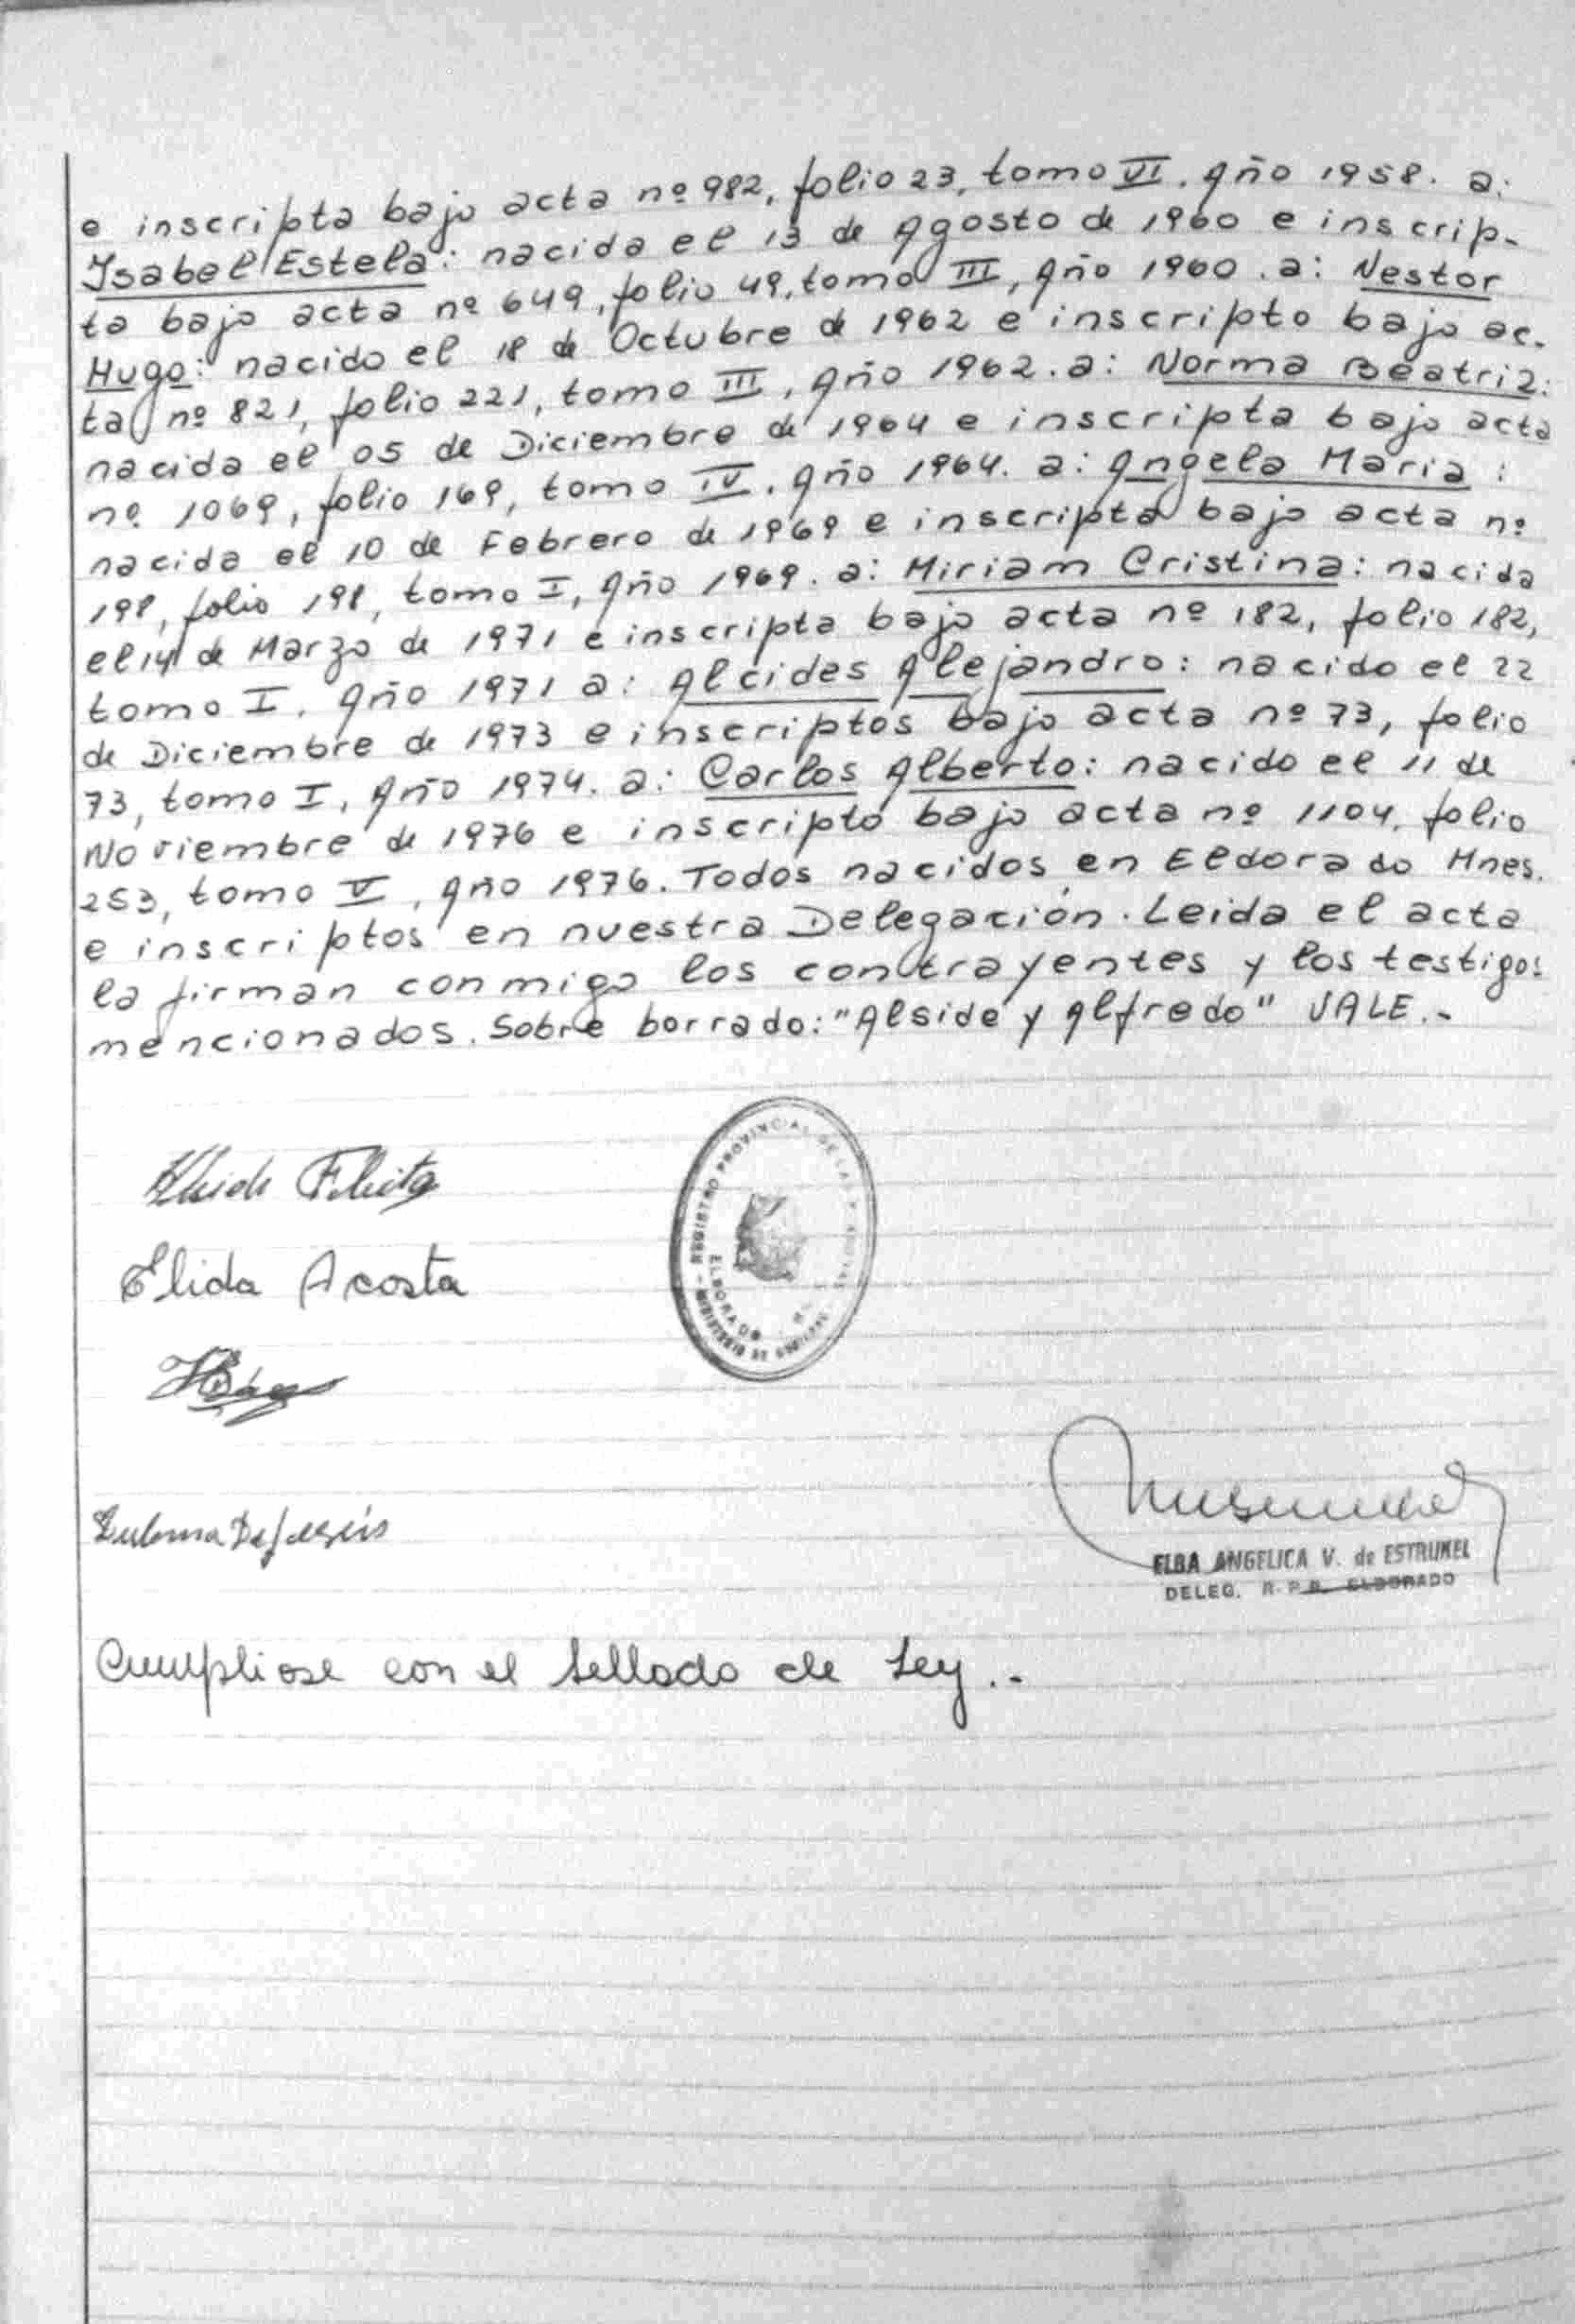 e inscripta bajo acta nº 982, folio 23, tomo VI. Año 1958. a:
Isabel Estela: nacida el 13 de Agosto de 1960 e inscrip-
ta bajo acta nº 649, folio 49, tomo III, Año 1960. a: Nestor
Hugo: nacido el 18 de Octubre de 1962 e inscripto bajo ac-
ta nº 821, folio 221, tomo III, Año 1962. a: Norma Beatriz:
nacida el 05 de Diciembre de 1964 e inscripta bajo acta
nº 1069, folio 169, tomo IV, Año 1964. a: Angela Maria:
nacida el 10 de Febrero de 1969 e inscripta bajo acta nº
198, folio 198, tomo I, Año 1969. a: Miriam Cristina: nacida
el 14 de Marzo de 1971 e inscripta bajo acta nº 182, folio 182,
tomo I. Año 1971 a: Alcides Alejandro: nacido el 22
de Diciembre de 1973 e inscriptos bajo acta nº 73, folio
73, tomo I, Año 1974. a: Carlos Alberto: nacido el 11 de
Noviembre de 1976 e inscripto bajo acta nº 1104, folio
253, tomo V, Año 1976. Todos nacidos en Eldorado Mnes.
e inscriptos en nuestra Delegación. Leida el acta
la firman conmigo los contrayentes y los testigos
mencionados. Sobre borrado: "Alside y Alfredo" VALE.-
REGISTRO PROVINCIAL DE LAS PERSONAS
ELDORADO
MINISTERIO DE GOBIERNO
Elida Acosta
ELBA ANGELICA V. de ESTRUKEL
DELEG. R. P. P. ELDORADO
Cumpliose con el sellado de Ley.-